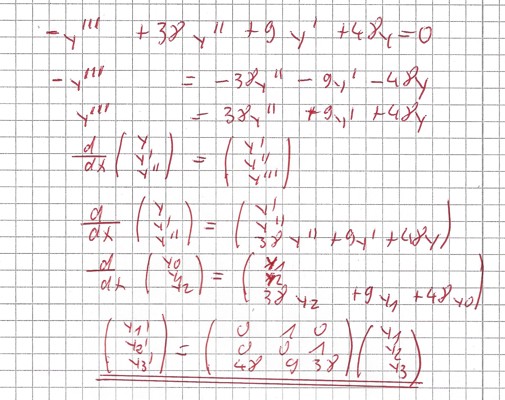 -y''' + 38y'' + 9y' + 48y = 0
-y''' = -38y'' - 9y' - 48y
y''' = 38y'' + 9y' + 48y
d/dx (y y' y'') = (y' y'' y''')
d/dx (y y' y'') = (y' y'' 38y'' + 9y' + 48y)
d/dx (y0 y1 y2) = (y1 y2 38y2 + 9y1 + 48y0)
(y1' y2' y3') = (0 1 0 0 0 1 48 9 38) (y1 y2 y3)